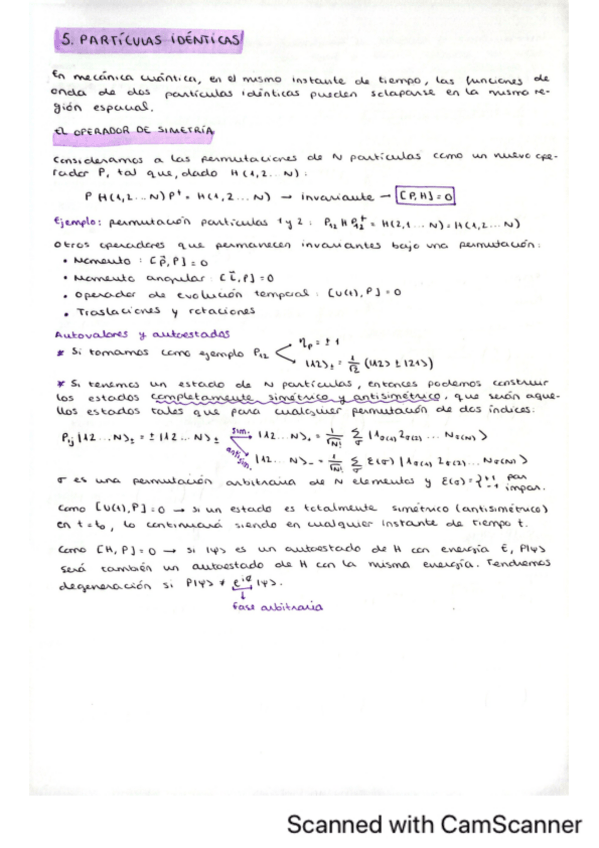 5. PARTÍCULAS IDÉNTICAS
En mecánica cuántica, en el mismo instante de tiempo, las funciones de
onda de dos partículas idénticas pueden solaparse en la misma re-
gión espacial.
EL OPERADOR DE SIMETRÍA
Consideramos a las permutaciones de N partículas como un nuevo ope-
rador P, tal que, dado H(1,2...N):
P H(1,2...N)P⁺ = H(1,2...N) → invariante → [P,H]=0
Ejemplo: permutación partículas 1 y 2: P₁₂ H P₁₂⁺ = H(2,1...N) = H(1,2...N)
Otros operadores que permanecen invariantes bajo una permutación:
• Momento: [p⃗,P]=0
• Momento angular: [L⃗,P]=0
• Operador de evolución temporal: [U(t),P]=0
• Traslaciones y rotaciones
Autovalores y autoestados
* Si tomamos como ejemplo P₁₂ < ηₚ = ±1
|12>± = 1/√2 (|12> ± |21>)
* Si tenemos un estado de N partículas, entonces podemos construir
los estados completamente simétrico y antisimétrico, que serán aque-
llos estados tales que para cualquier permutación de dos índices:
Pᵢⱼ |12...N>± = ± |12...N>± sim. |12...N>₊ = 1/√N! Σσ |1σ(1) 2σ(2) ... Nσ(N)>
antisim. |12...N>₋ = 1/√N! Σσ ε(σ) |1σ(1) 2σ(2)... Nσ(N)>
σ es una permutación arbitraria de N elementos y ε(σ) = {+1 par
-1 impar.
Como [U(t),P]=0 → si un estado es totalmente simétrico (antisimétrico)
en t=t₀, lo continuará siendo en cualquier instante de tiempo t.
Como [H,P]=0 → si |ψ> es un autoestado de H con energía E, P|ψ>
será también un autoestado de H con la misma energía. Tendremos
degeneración si P|ψ> ≠ e^iφ |ψ>.
fase arbitraria
Scanned with CamScanner